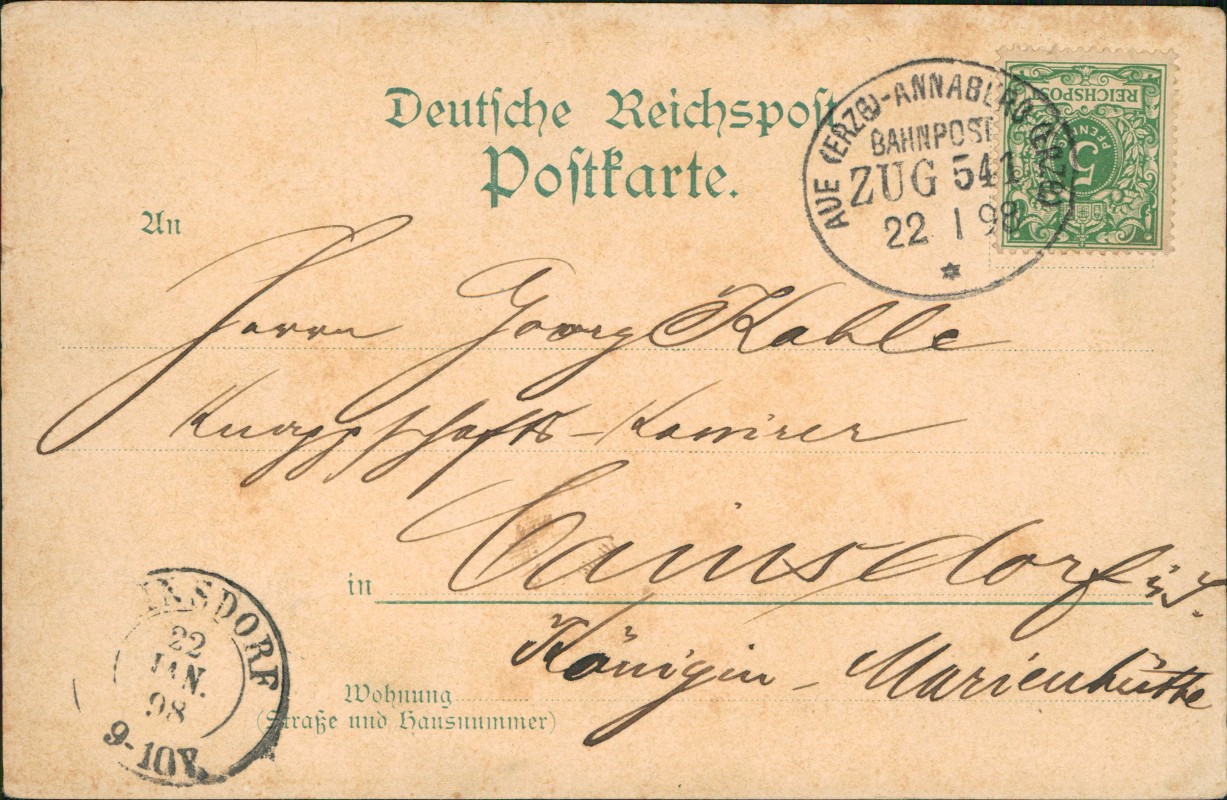 Deutsche Reichspost
Postkarte.
AUE (ERZG)-ANNABERG (ERZG)
BAHNPOST
ZUG 541
22 1 98
REICHSPOST
5
PFENNIG
An
Herrn Georg Kahle
Knappschafts-Kassirer
in Cainsdorf i/S.
Königin-Marienhütte
Wohnung
(Straße und Hausnummer)
INSDORF
22
JAN.
98
9-10V.